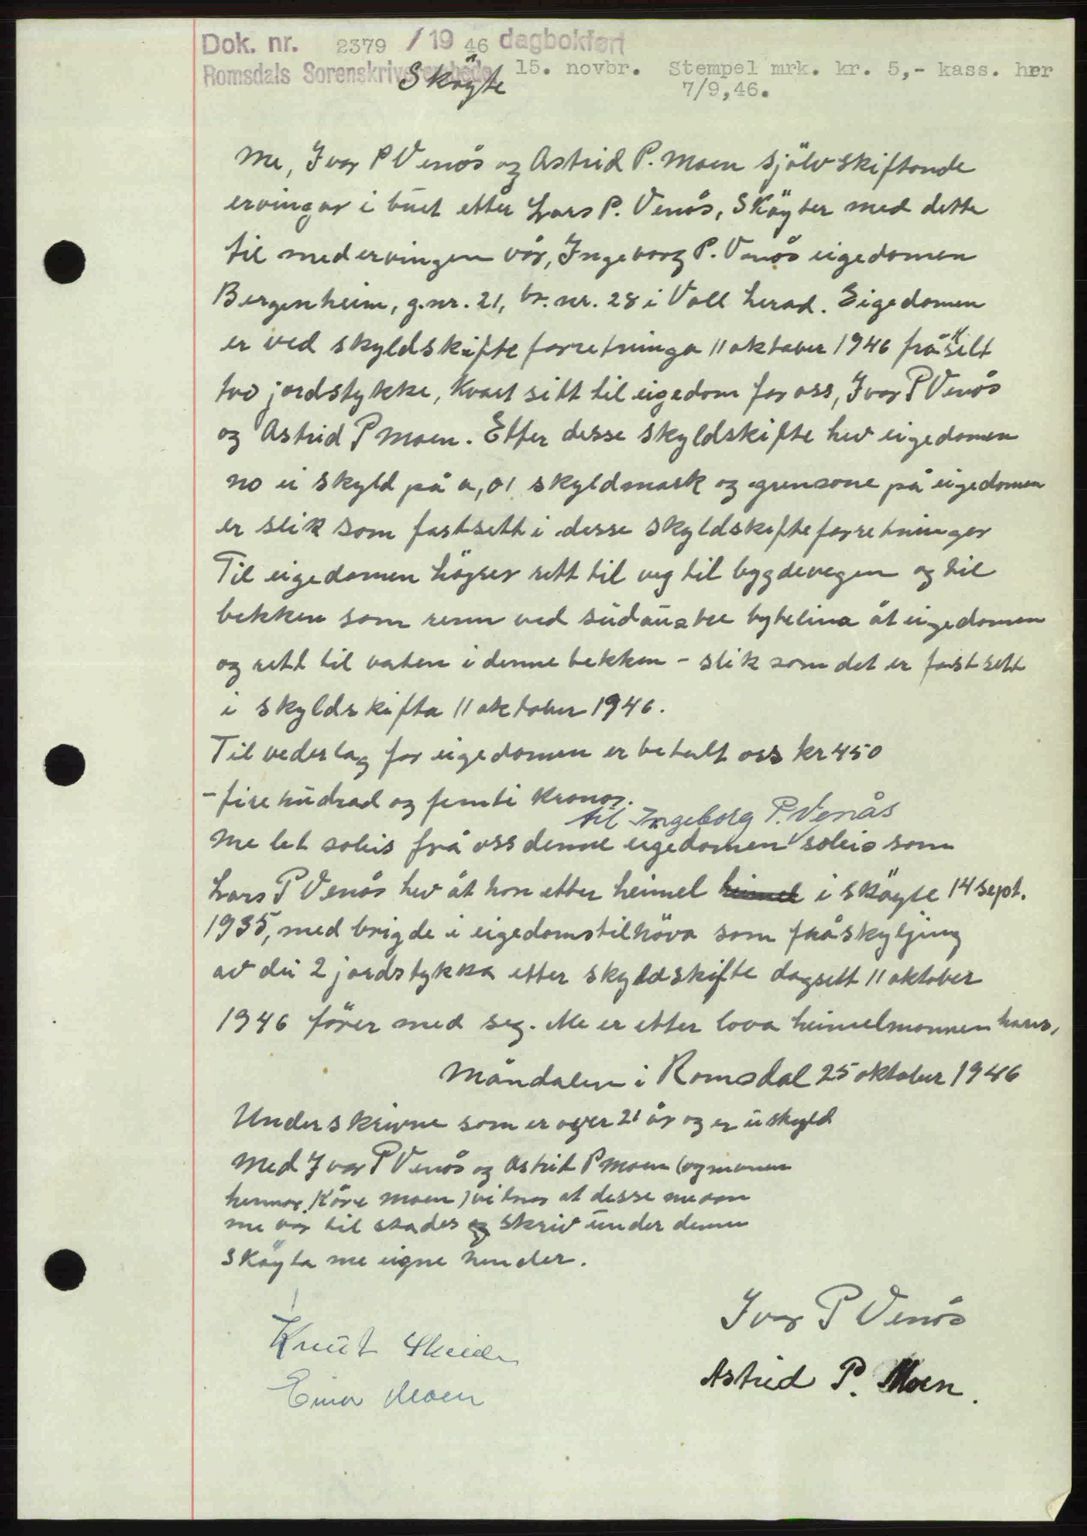 Dok. nr. 2379 / 19 46 dagbokført
Romsdals Sorenskriverembede 15. novbr. Stempel mrk. kr. 5,- kass. her
7/9,46.
Skøyte
Me, Ivar P Venås og Astrid P. Moen sjølvskiftande
ervingar i buet etter Lars P. Venås, Skøyter med dette
til medervingen vår, Ingeborg P. Venås eigedomen
Bergenheim, g.nr. 21, br. nr. 28 i Voll herad. Eigedomen
er ved skyldskifteforretninga 11 oktober 1946 fråskilt
two jordstykke, kvart sitt til eigedom for oss, Ivar P Venås
og Astrid P Moen. Etter desse skyldskifte hev eigedomen
no ei skyld på 0,01 skyldmark og grensone på eigedomen
er slik som fastsett i desse skyldskifteforretningar
Til eigedomen høyrer rett til veg til bygdevegen og til
bekken som renn ved sudaustre bytelina åt eigedomen
og rett til vatten i denne bekken - slik som det er fastsett
i skyldskifta 11 oktober 1946.
Til vederlag for eigedomen er betalt oss kr 450
- fire hudrad og femti kronor.
til Ingeborg P. Venås
me let soleis frå oss denne eigedomen soleis som
Lars P Venås hev åt hon etter heimel heimel i skøyte 14 sept.
1935, med brigde i eigedomstilhøva som fråskyljing
av dei 2 jordstykka etter skyldskifte dagsett 11 oktober
1946 fører med seg. Me er etter lova heimelmannen hans,
Måndalen i Romsdal 25 oktober 1946
Underskrivne som er over 21 år og er uskyld
med Ivar P Venås og Astrid P Moen (og mannen
hennar Kåre Moen) vitnar at desse
me var til stades og skriv under denne
Skøyta me eigne hender.
Ivar P Venås
Knut
Astrid P. Moen.
Einar Moen